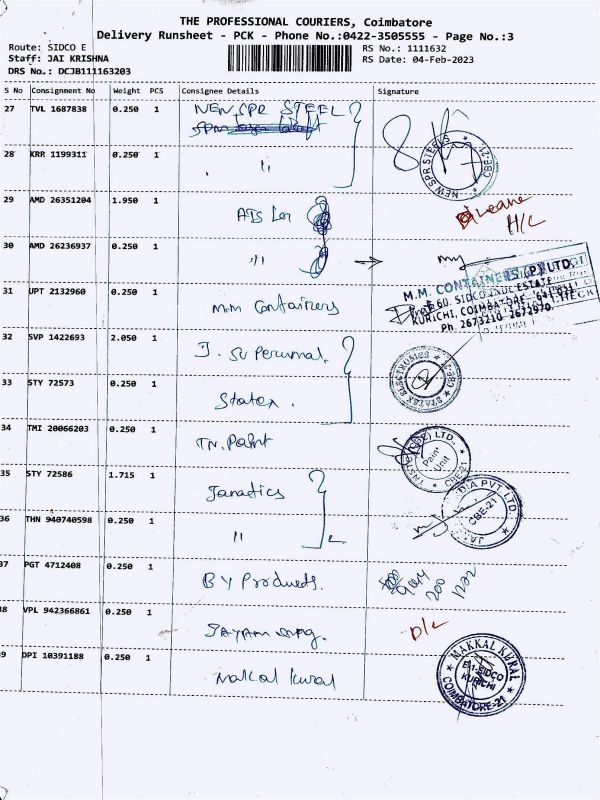 THE PROFESSIONAL COURIERS, Coimbatore
Delivery Runsheet - PCK - Phone No.:0422-3505555 - Page No.:3
Route: SIDCO E RS No.: 1111632
Staff: JAI KRISHNA RS Date: 04-Feb-2023
DRS No.: DCJB111163203
S No Consignment No Weight PCS Consignee Details Signature
27 TVL 1687838 0.250 1 NEW SPR STEEL
28 KRR 1199311 0.250 1 "
NEW SPR STEELS CBE-21
29 AMD 26351204 1.950 1
H/L
30 AMD 26236937 0.250 1 "
31 UPT 2132960 0.250 1 M.M Containers
M.M. CONTAINERS (P) LTD
60, SIDCO IND. ESTATE
KURICHI, COIMBATORE - 641 021
Ph: 2673210 2672970
32 SVP 1422693 2.050 1 J. Su Perumal.
33 STY 72573 0.250 1 Statex.
STATEX ELECTRONICS CBE-21
34 TMI 20066203 0.250 1 TN. Paint
LTD. Paint Unit CBE-21
35 STY 72586 1.715 1 Janatics
36 THN 940740598 0.250 1 "
DIA PVT. LTD. CBE-21
37 PGT 4712408 0.250 1 BY Products.
38 VPL 942366861 0.250 1 D/L
39 DPI 10391188 0.250 1 Makkal Kural
MAKKAL KURAL
E-1-SIDCO
KURICHI
COIMBATORE-21